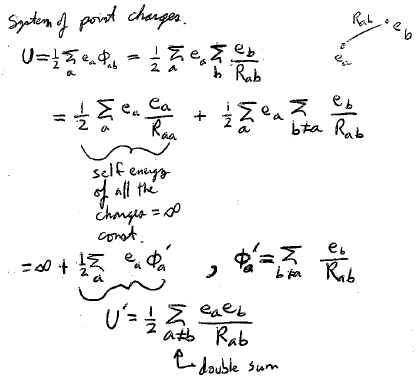 System of point charges.
R_ab e_b
e_a
U = 1/2 Σ_a e_a ϕ_ab = 1/2 Σ_a e_a Σ_b e_b/R_ab
= 1/2 Σ_a e_a e_a/R_aa + 1/2 Σ_a e_a Σ_{b≠a} e_b/R_ab
self energy
of all the
charges = ∞
const.
= ∞ + 1/2 Σ_a e_a ϕ_a' , ϕ_a' = Σ_{b≠a} e_b/R_ab
U' = 1/2 Σ_{a≠b} e_a e_b/R_ab
double sum